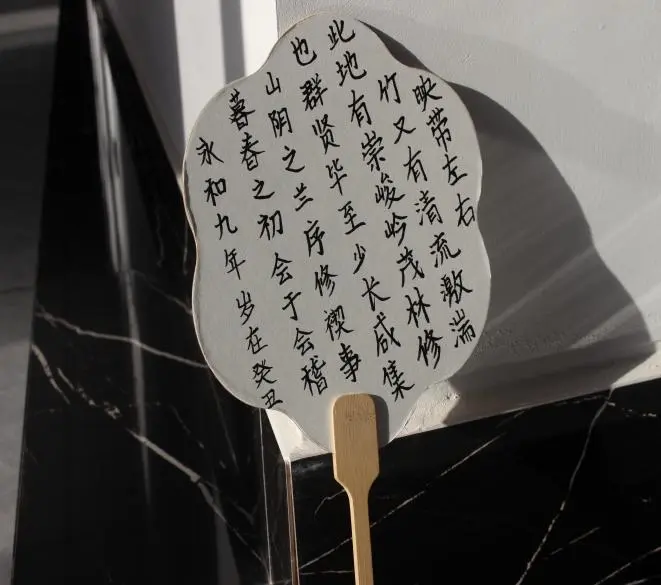 永和九年岁在癸丑
暮春之初会于会稽
山阴之兰序修禊事
也群贤毕至少长咸集
此地有崇峻岭茂林修
竹又有清流激湍
映带左右